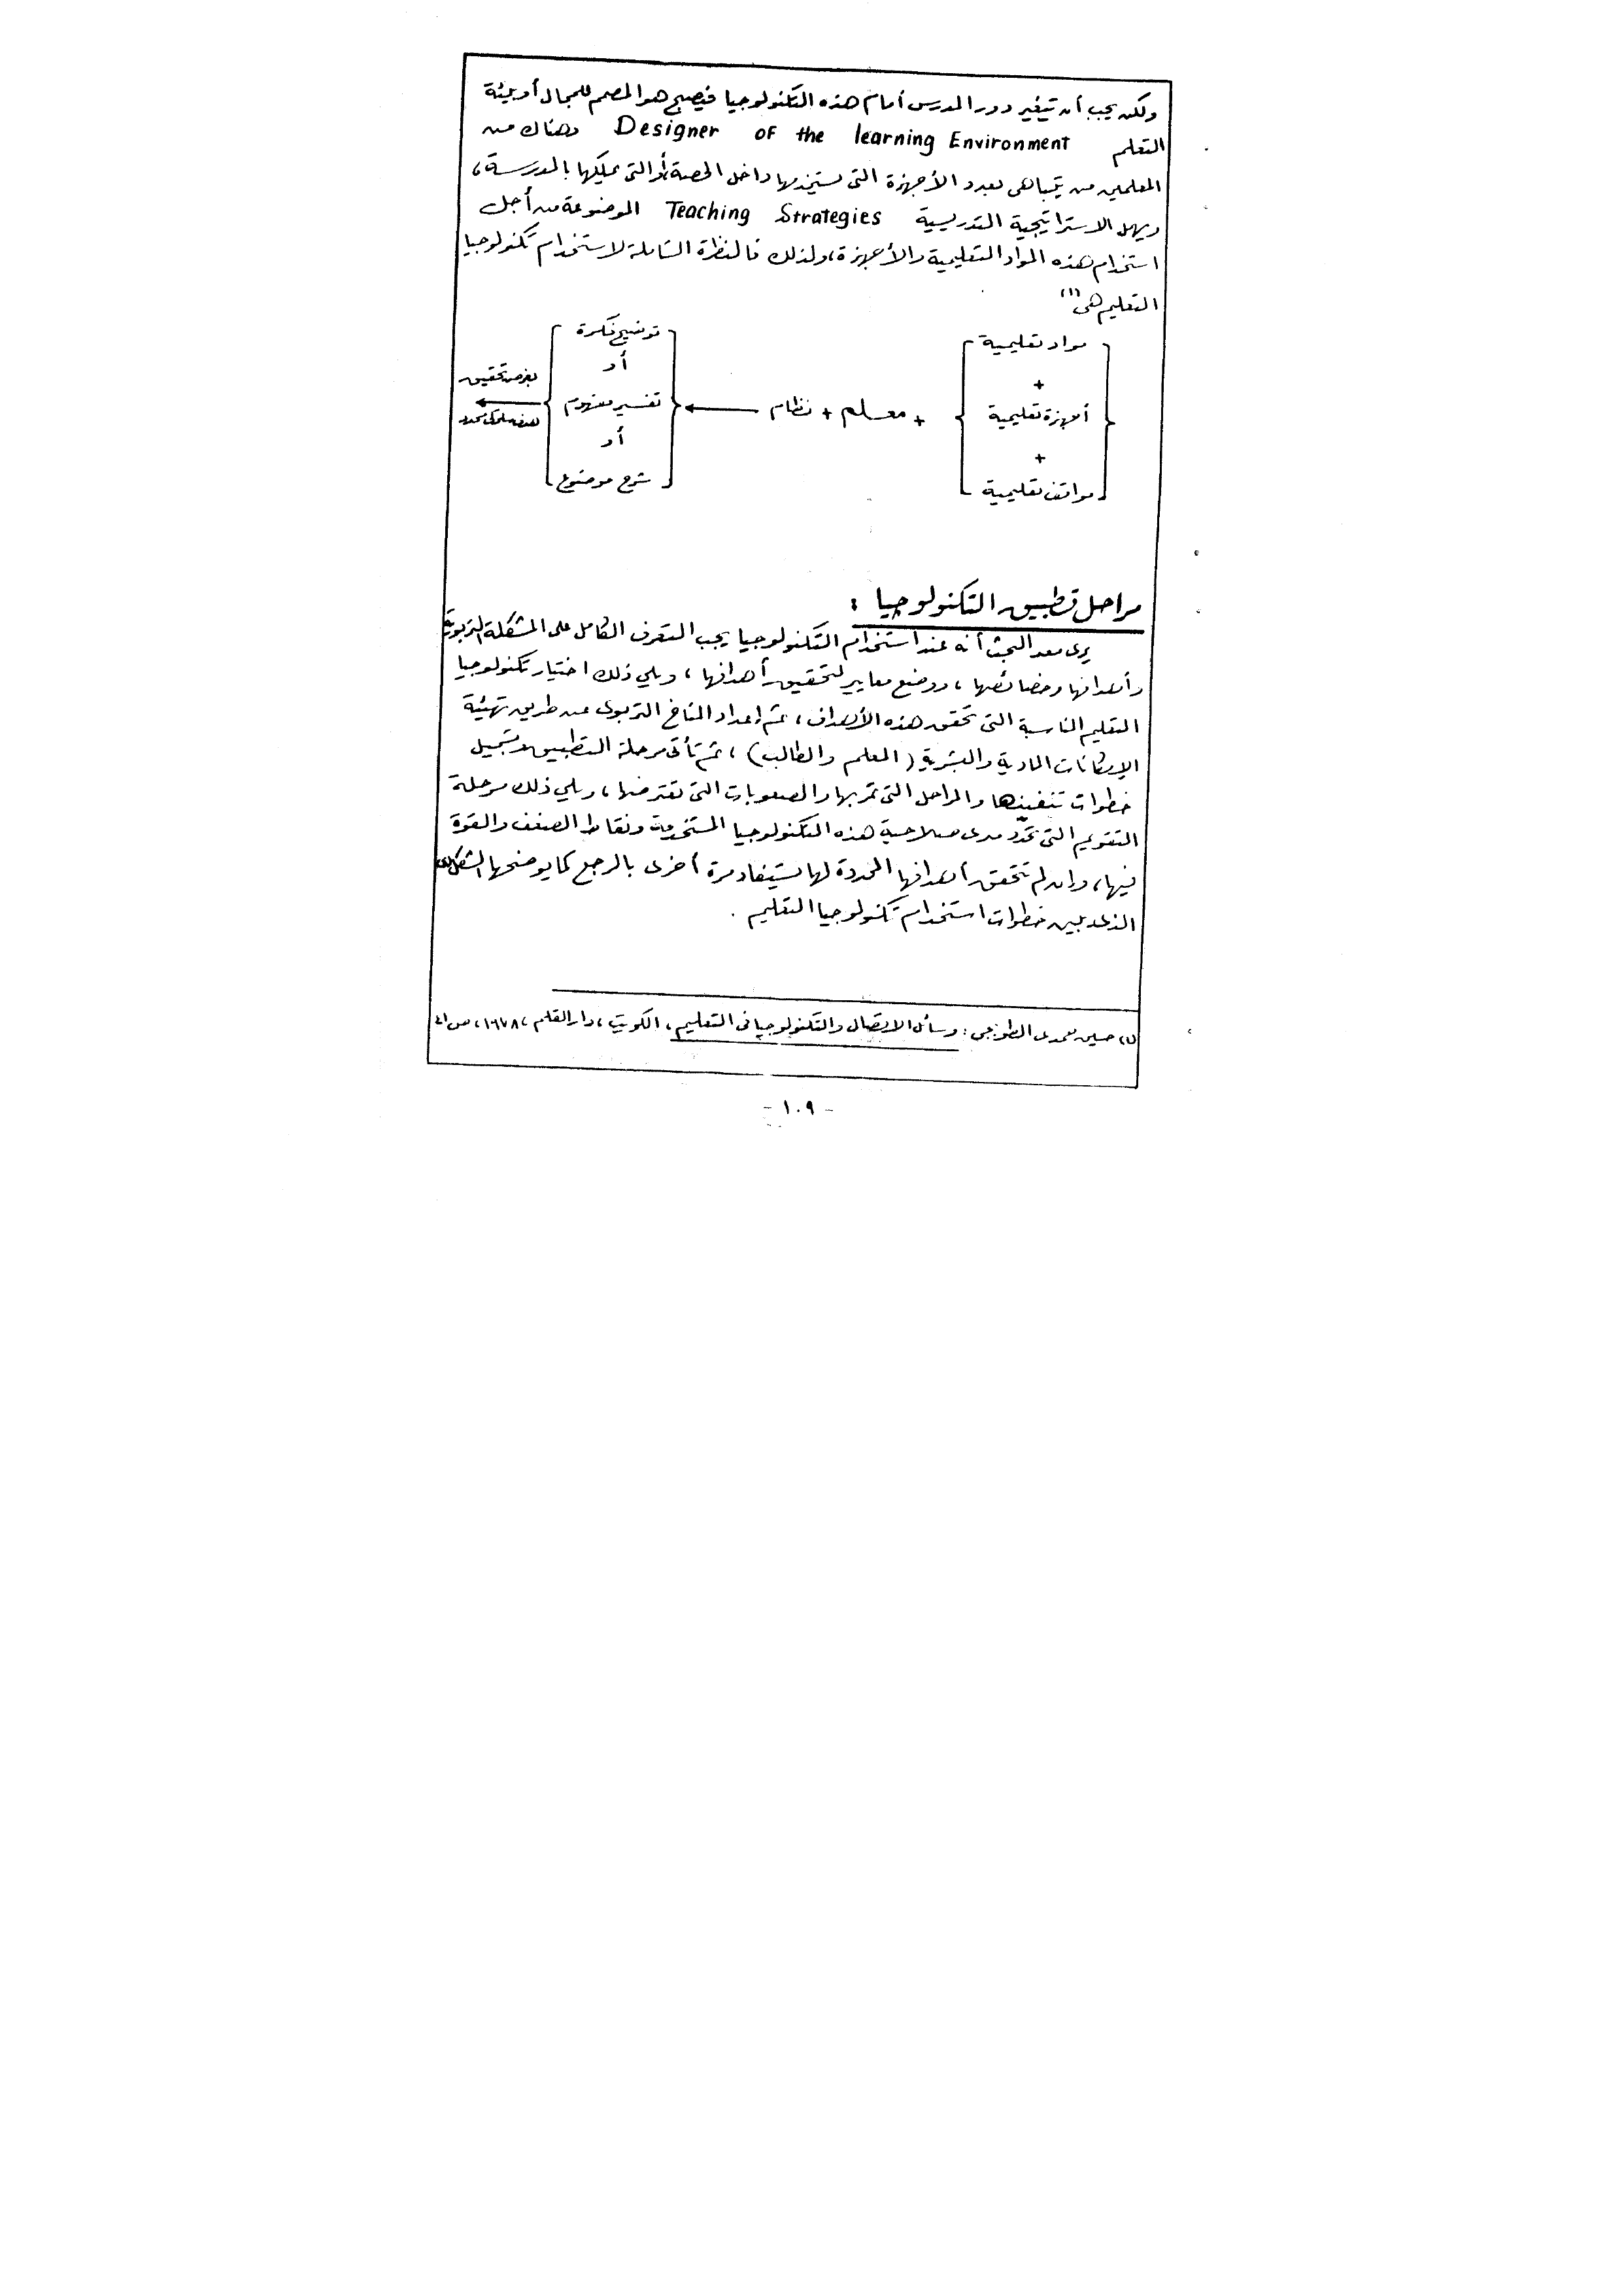 ولكن يجب أن يتغير دور المدرس أمام هذه التكنولوجيا فيصبح هو المصمم للمجال أو بيئة
التعلم Designer of the learning Environment وهناك من
المعلمين من يتباهى بعدد الأجهزة التى يستخدمها داخل الحصة، أو التى يملكها بالمدرسة،
ويهمل الاستراتيجية التدريسية Teaching Strategies الموضوعة من أجل
استخدام هذه المواد التعليمية والأجهزة، ولذلك فالنظرة الشاملة لاستخدام تكنولوجيا
التعليم هى (١)
مواد تعليمية
+
أجهزة تعليمية
+
مواقف تعليمية
+ معلم + نظام
توضيح فكرة
أو
تفسير مفهوم
أو
شرح موضوع
بغرض تحقيق
هدف سلوكى محدد
مراحل تطبيق التكنولوجيا :
يرى معد البحث أنه عند استخدام التكنولوجيا يجب التعرف الكامل على المشكلة التربوية
وأهدافها وخصائصها، ووضع معايير لتحقيق أهدافها، ويلي ذلك اختيار تكنولوجيا
التعليم المناسبة التى تحقق هذه الأهداف، ثم إعداد المناخ التربوى عن طريق تهيئة
الإمكانات المادية والبشرية (المعلم والطالب)، ثم تأتى مرحلة التطبيق وتسجيل
خطوات تنفيذها والمراحل التى تمر بها والصعوبات التى تعترضها، ويلي ذلك مرحلة
التقويم التى تحدّد مدى صلاحية هذه التكنولوجيا المستخدمة ونقاط الضعف والقوة
فيها، وإن لم تتحقق أهدافها المحددة لها يستفاد مرة أخرى بالرجع كما يوضحها الشكل
الذى يبين خطوات استخدام تكنولوجيا التعليم .
(١) حسين حمدى الطوبجى : وسائل الاتصال والتكنولوجيا فى التعليم، الكويت، دار القلم، ١٩٧٨، ص ٤١
- ١٠٩ -